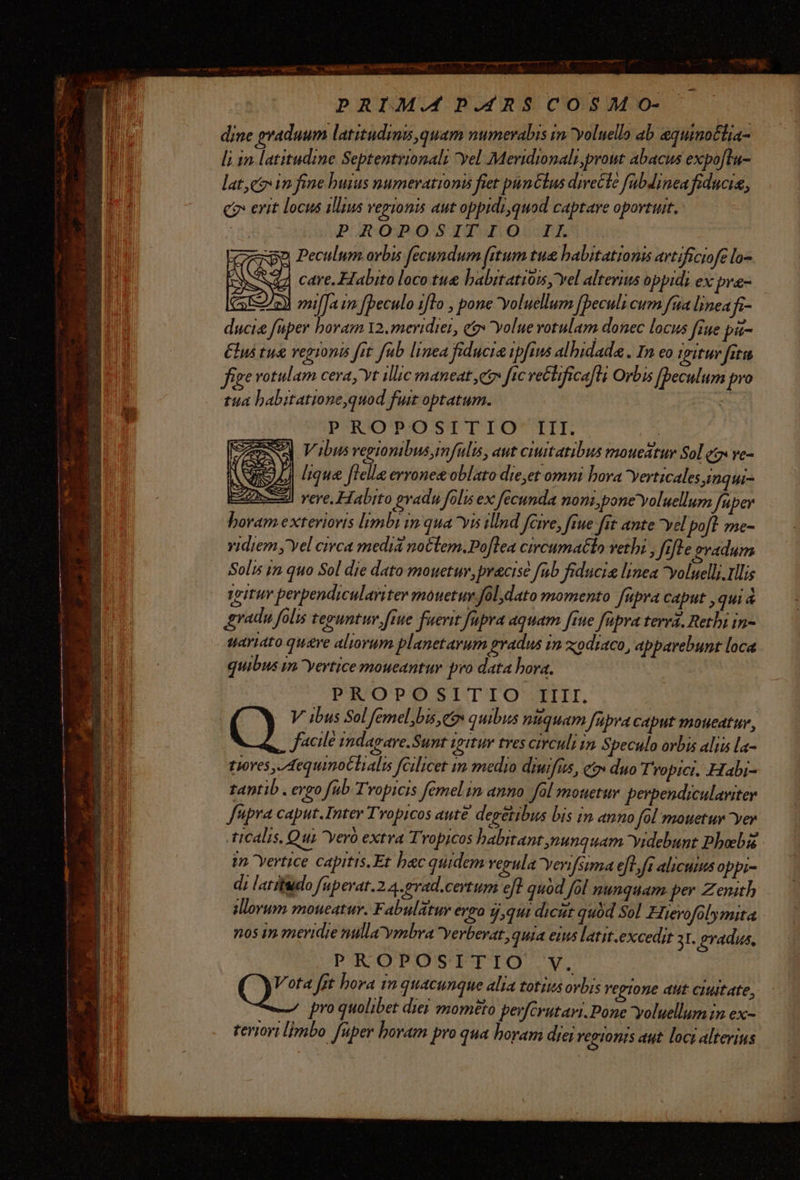 PRIMA PARS COSMO-
dine graduum latitudinis,quam numerabis in voluello ab æquinoctia-
li in latitudine Septentrionali vel Meridionali,prout abacus expostu-
lat,& in fine huius numerationis fiet pūnctus directè sublinea fiduciæ,
& erit locus illius regionis aut oppidi,quod captare oportuit.
PROPOSITIO II.
SPeculum orbis secundum situm tuæ habitationis artificiose lo-
care. Habito loco tuæ habitatiōis, vel alterius oppidi ex præ-
missa in speculo isto , pone voluellum speculi cum sua linea fi-
duciæ super horam 12.meridiei, & volue rotulam donec locus siue pū-
ctus tuæ regionis sit sub linea fiduciæ ipsius alhidadæ. In eo igitur situ
fige rotulam cera, vt illic maneat ,& sic rectificasti Orbis speculum pro
tua habitatione,quod fuit optatum.
PROPOSITIO III.
QVibus regionibus,insulis, aut ciuitatibus moueātur Sol & re-
liquæ stellæ erroneæ oblato die,et omni hora verticales,inqui-
rere. Habito gradu solis ex secunda noni,pone voluellum super
horam exterioris limbi in qua vis illud scire, siue sit ante vel post me-
ridiem, vel circa mediā noctem.Postea circumacto rethi , siste gradum
Solis in quo Sol die dato mouetur,præcisè sub fiduciæ linea voluelli.Illis
igitur perpendiculariter mouetur sol,dato momento supra caput ,qui à
gradu solis teguntur,siue fuerit supra aquam siue supra terrā. Rethi in-
uariato quære aliorum planetarum gradus in zodiaco, apparebunt loca
quibus in vertice moueantur pro data hora.
PROPOSITIO IIII.
QVibus Sol semel,bis,& quibus nūquam supra caput moueatur,
facilè indagare.Sunt igitur tres circuli in Speculo orbis aliis la-
tiores, Aequinoctialis scilicet in medio diuisus, & duo Tropici. Habi-
tantib. ergo sub Tropicis semel in anno sol mouetur perpendiculariter
supra caput.Inter Tropicos autē degētibus bis in anno sol mouetur ver
ticalis. Qui verò extra Tropicos habitant,nunquam videbunt Phœbū
in vertice capitis.Et hæc quidem regula verissima est,si alicuius oppi-
di latitudo superat.24.grad.certum est quòd sol nunquam per Zenith
illorum moueatur. Fabulātur ergo ij,qui dicūt quòd Sol Hierosolymita
nos in meridie nulla vmbra verberat,quia eius latit.excedit 31. gradus.
PROPOSITIO V.
QVota sit hora in quacunque alia totius orbis regione aut ciuitate,
pro quolibet diei momēto perscrutari.Pone voluellum in ex-
teriori limbo super horam pro qua horam diei regionis aut loci alterius